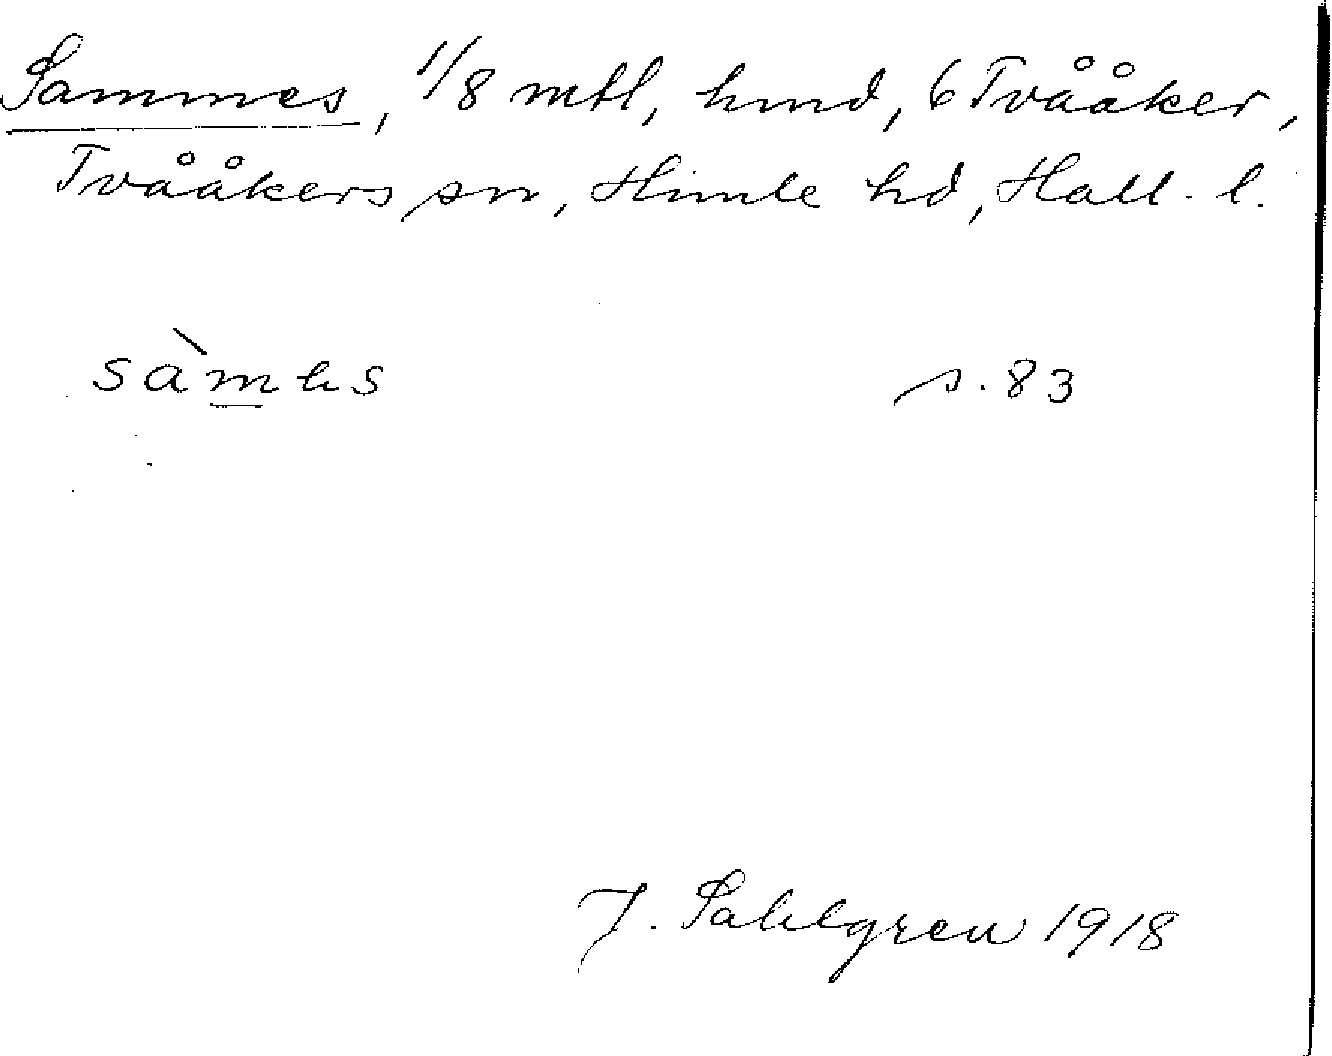 Sammes, 1/8 mtl, hmd, 6 Tvååker,
Tvååkers sn, Himle hd, Hall. l.
s. 83
J. Sahlgren 1918